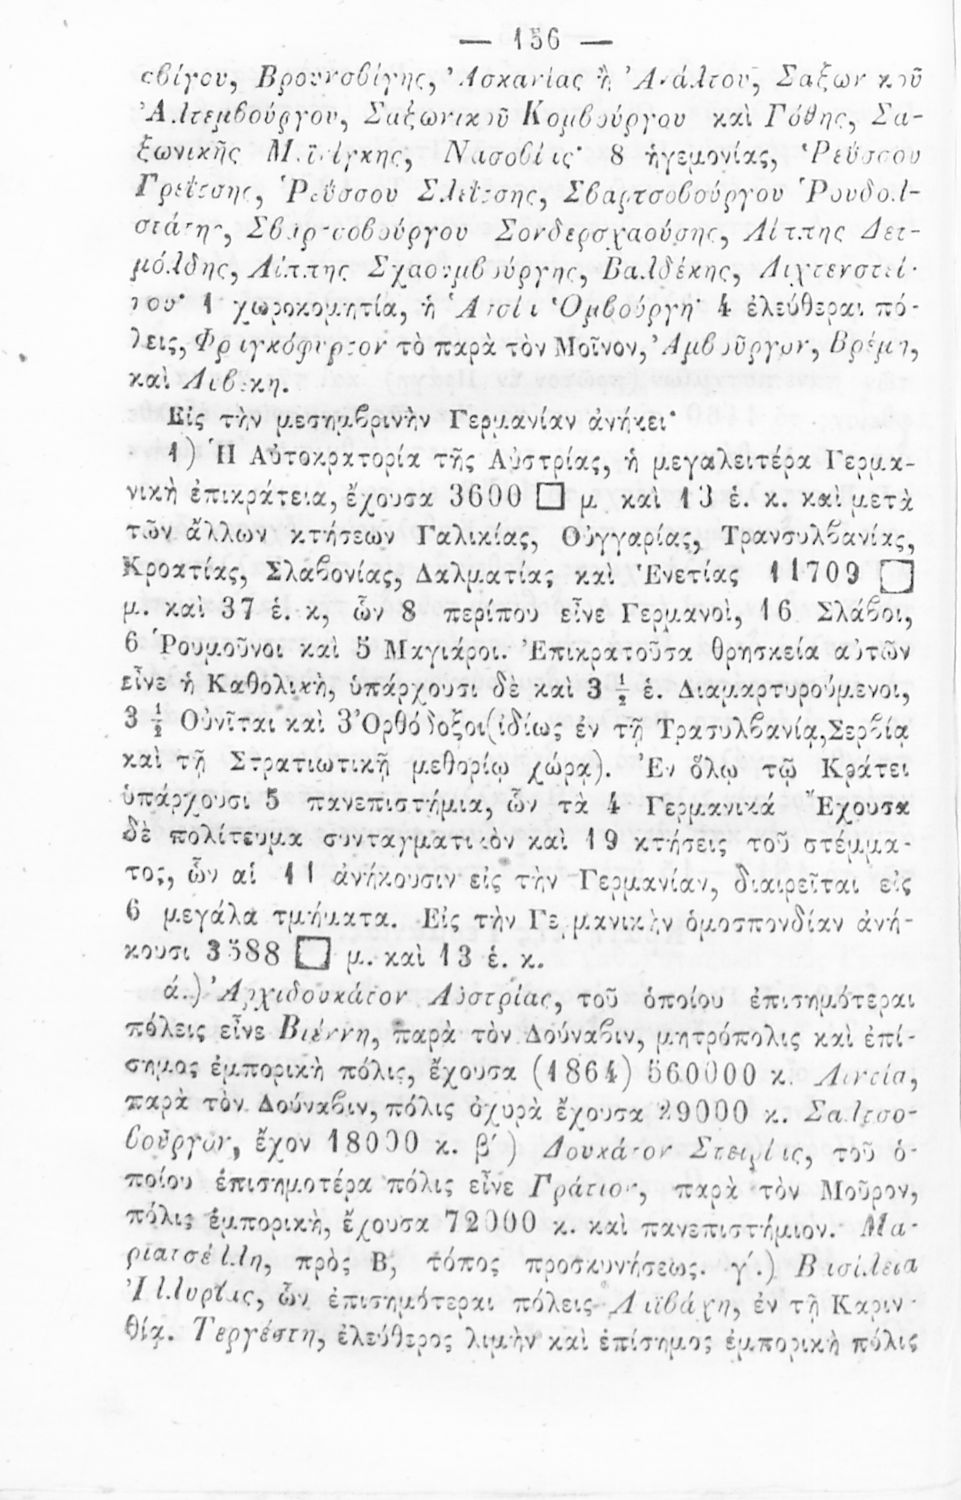 — 156 —
σβίγου, Βρουνσβίγης, Ἀσκανίας ἢ Ἀνάλτου, Σαξωνικοῦ
Ἀλτεμβούργου, Σαξωνικοῦ Κομβούργου καὶ Γόθης, Σα-
ξωνικῆς Μαϊνίγκης, Νασοβίας· 8 ἡγεμονίας, Ῥεΰσσου
Γρεΐτσης, Ῥεΰσσου Σλεΐτσης, Σβαρτσοβούργου Ῥουδολ-
στάτης, Σβαρτσοβούργου Σονδερσχαούσης, Λίππης Δετ-
μόλδης, Λίππης Σχαουμβούργης, Βαλδέκης, Λιχτενστεί-
νου· 1 χωροκομητία, ἡ Ἀσσία Ὁμβούργη· 4 ἐλεύθεραι πό-
λεις, Φραγκόφυρτον τὸ παρὰ τὸν Μοῖνον, Ἀμβοῦργον, Βρέμη,
καὶ Λυβέκη.
Εἰς τὴν μεσημβρινὴν Γερμανίαν ἀνήκει·
1) Ἡ Αὐτοκρατορία τῆς Αὐστρίας, ἡ μεγαλειτέρα Γερμα-
νικὴ ἐπικράτεια, ἔχουσα 3600 □ μ καὶ 13 ἑ. κ. καὶ μετὰ
τῶν ἄλλων κτήσεων Γαλικίας, Οὑγγαρίας, Τρανσυλβανίας,
Κροατίας, Σλαβονίας, Δαλματίας καὶ Ἑνετίας 11709 □
μ. καὶ 37 ἑ. κ, ὧν 8 περίπου εἶνε Γερμανοὶ, 16 Σλάβοι,
6 Ῥουμοῦνοι καὶ 5 Μαγιάροι. Ἐπικρατοῦσα θρησκεία αὐτῶν
εἶνε ἡ Καθολικὴ, ὑπάρχουσι δὲ καὶ 3 ½ ἑ. Διαμαρτυρούμενοι,
3 ½ Οὐνῖται καὶ 3 Ὀρθόδοξοι (ἰδίως ἐν τῇ Τρασυλβανίᾳ, Σερβίᾳ
καὶ τῇ Στρατιωτικῇ μεθορίῳ χώρᾳ). Ἐν ὅλῳ τῷ Κράτει
ὑπάρχουσι 5 πανεπιστήμια, ὧν τὰ 4 Γερμανικά Ἔχουσα
δὲ πολίτευμα συνταγματικὸν καὶ 19 κτήσεις τοῦ στέμμα-
τος, ὧν αἱ 11 ἀνήκουσιν εἰς τὴν Γερμανίαν, διαιρεῖται εἰς
6 μεγάλα τμήματα. Εἰς τὴν Γερμανικὴν ὁμοσπονδίαν ἀνή-
κουσι 3588 □ μ. καὶ 13 ἑ. κ.
ά.) Ἀρχιδουκάτον Αὐστρίας, τοῦ ὁποίου ἐπισημότεραι
πόλεις εἶνε Βιέννη, παρὰ τὸν Δούναβιν, μητρόπολις καὶ ἐπί-
σημος ἐμπορικὴ πόλις, ἔχουσα (1864) 560000 κ. Λιντία,
παρὰ τὸν Δούναβιν, πόλις ὀχυρὰ ἔχουσα 29000 κ. Σαλτσο-
βοῦργον, ἔχον 18000 κ. β΄) Δουκάτον Στειρίας, τοῦ ὁ-
ποίου ἐπισημοτέρα πόλις εἶνε Γράτιον, παρὰ τὸν Μοῦρον,
πόλις ἐμπορικὴ, ἔχουσα 72000 κ. καὶ πανεπιστήμιον. Μα-
ριατσέλλη, πρὸς Β, τόπος προσκυνήσεως. γ΄.) Βασίλεια
Ἰλλυρίας, ὧν ἐπισημότεραι πόλεις Λαϊβάχη, ἐν τῇ Καριν-
θίᾳ. Τεργέστη, ἐλεύθερος λιμὴν καὶ ἐπίσημος ἐμπορικὴ πόλις